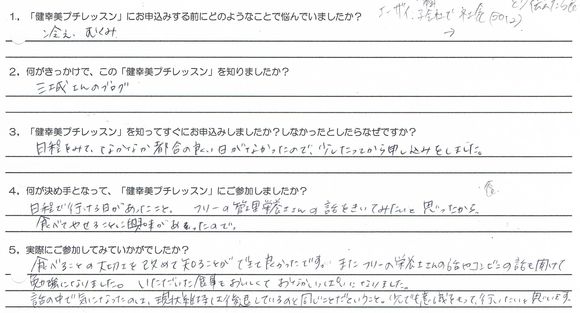 1.「健幸美プチレッスン」にお申込みする前にどのようなことで悩んでいましたか？
冷え、むくみ
2. 何がきっかけで、この「健幸美プチレッスン」を知りましたか？
三城さんのブログ
3.「健幸美プチレッスン」を知ってすぐにお申込みしましたか？しなかったとしたらなぜですか？
日程をみて、なかなか都合の良い日がなかったので、少したってから申し込みをしました。
4. 何が決め手となって、「健幸美プチレッスン」にご参加しましたか？
日程で行ける日があったこと。 フリーの管理栄養士さんの話をきいてみたいと思ったから、
食べてやせることに興味があったので。
5. 実際にご参加してみていかがでしたか？
食べることの大切さを改めて知ることができて良かったです。またフリーの栄養士さんの話やコンビニの話も聞けて
勉強になりました。いただいた食事もおいしくておなかいっぱいになりました。
話の中で気になったのは、現状維持は後退しているのと同じことだということ。少しでも意識をもって、行いたいと思います。